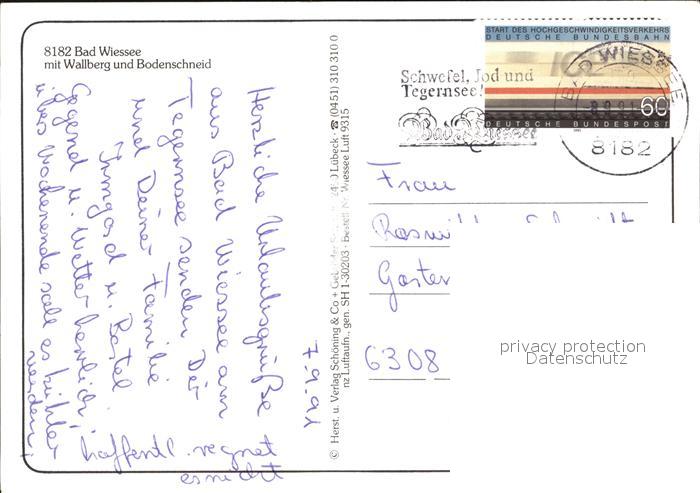 8182 Bad Wiessee
mit Wallberg und Bodenschneid
7.9.91
Herzliche Urlaubsgrüße
aus Bad Wiessee am
Tegernsee senden Dir
und Deiner Familie
Irmgard u. Bärbel
Gegend u. Wetter herrlich,
übers Wochenende soll es kühler
werden,
hoffentl. regnet
es nicht
© Herst. u. Verlag Schöning & Co + Lübeck · ☎ (0451) 310 310 0
nz Luftaufn.: gen. SH 1-30203 · Bestell Wiessee Luft 9315
Schwefel, Jod und
Tegernsee!
Bad Wiessee
START DES HOCHGESCHWINDIGKEITSVERKEHRS
DEUTSCHE BUNDESBAHN
60
DEUTSCHE BUNDESPOST
BAD WIESSEE
8182
Frau
6308
privacy protection
Datenschutz